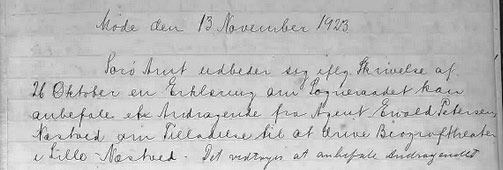 Møde den 13 November 1923
Sorø Amt udbeder sig iflg. Skrivelse af
26 Oktober en Erklæring om Sogneraadet kan
anbefale et Andragende fra Agent Ewald Petersen
Næstved om Tilladelse til at drive Biograftheater
i Lille Næstved. Det vedtoges at anbefale Andragendet